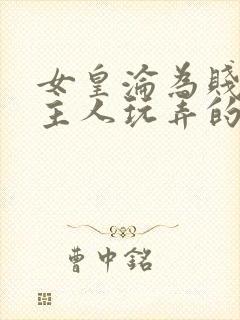 女皇淪為賤
主人玩弄的
曹中銘